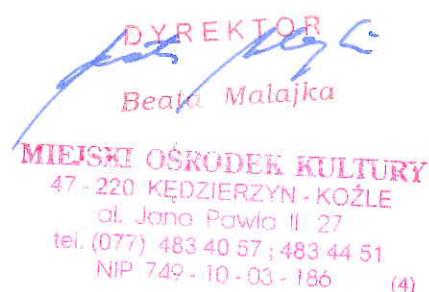 DYREKTOR
Beata Malajka
MIEJSKI OŚRODEK KULTURY
47 - 220 KĘDZIERZYN - KOŹLE
al. Jana Pawła II 27
tel. (077) 483 40 57 ; 483 44 51
NIP 749 - 10 - 03 - 186 (4)